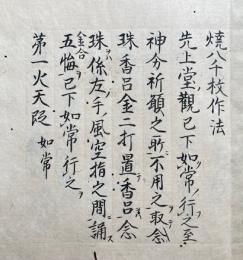 燒八十枚作法
先上堂觀已下如常ノ行之至
神分祈願之時不用之取念
珠香呂金二打置香呂念
珠係左ノ手ノ風空指之間誦
五悔已下如常行之
金合
第一火天段 如常